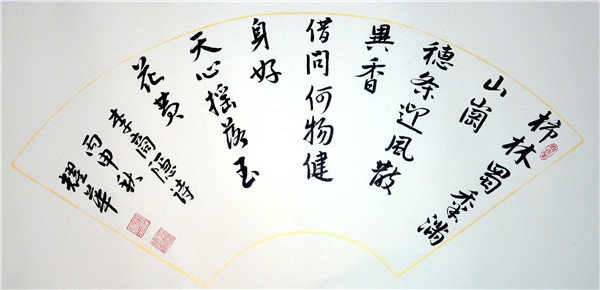 柿林蜀黍满
山崗
穗条迎風散
異香
借问何物健
身好
天心摇落玉
花黄
李商隐诗
丙申秋
耀華